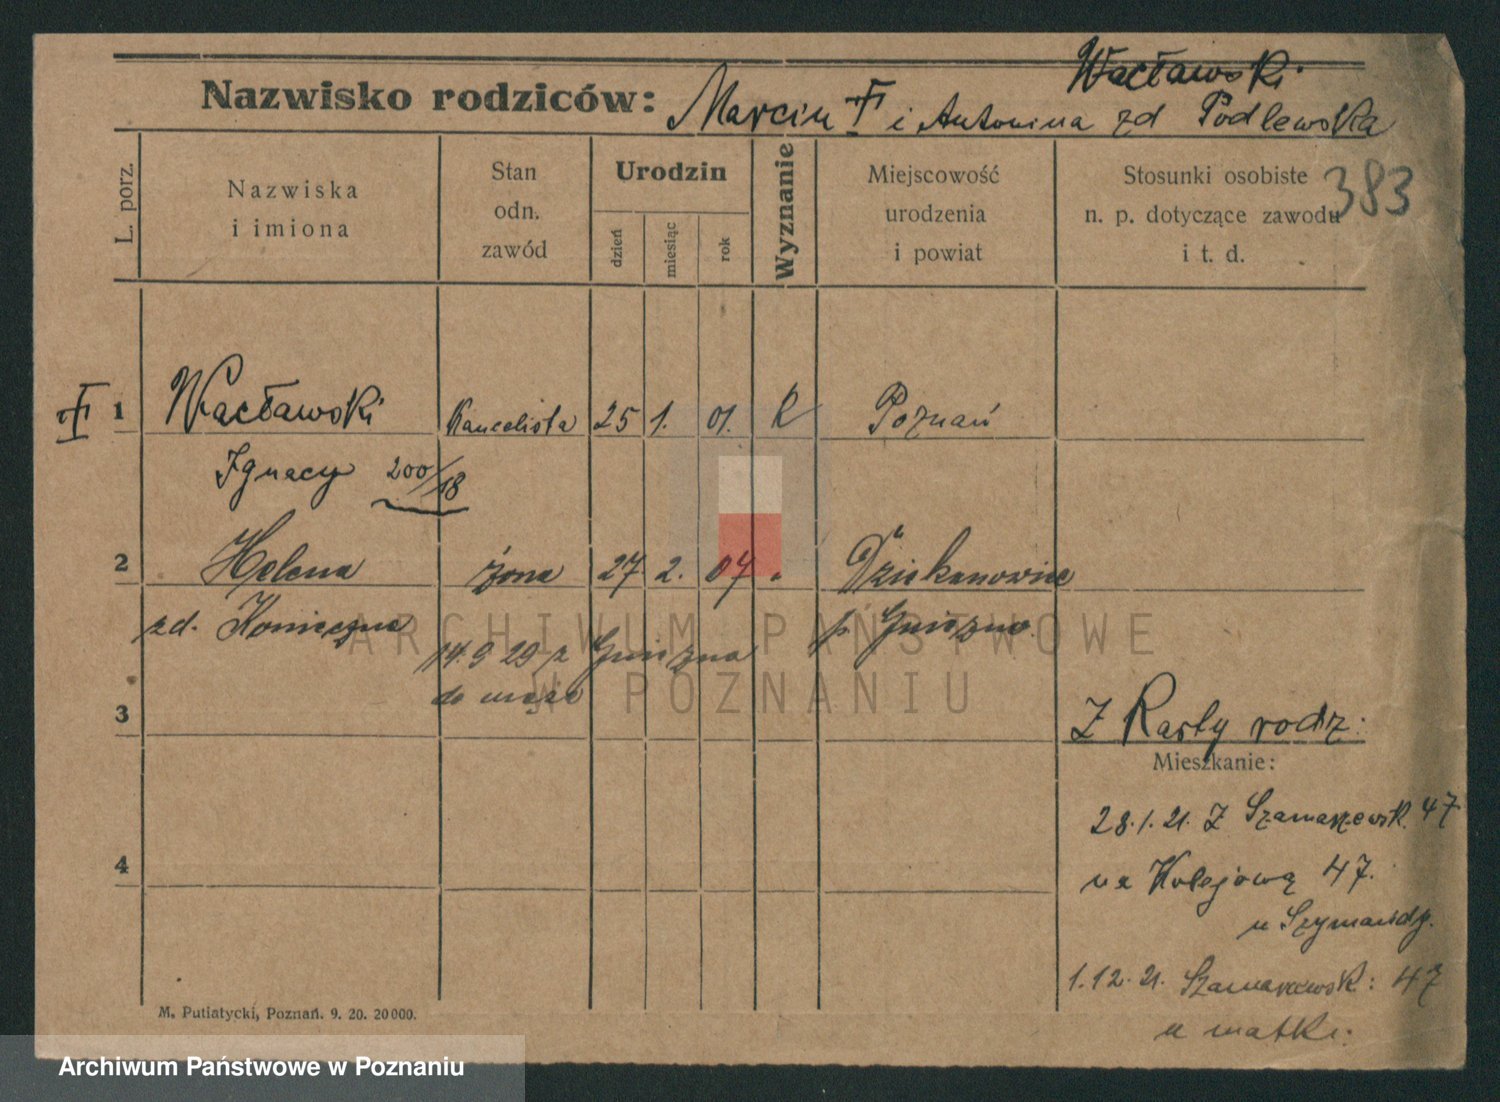 Wacławski
Nazwisko rodziców: Marcin i Antonina zd Podlewska
383
L. porz.
Nazwiska i imiona
Stan odn. zawód
Urodzin
dzień
miesiąc
rok
Wyznanie
Miejscowość urodzenia i powiat
Stosunki osobiste n. p. dotyczące zawodu i t. d.
1 Wacławski Kancelista 25 1. 01. K Poznań
Ignacy 200/18
2 Helena żona 27 2. 07 " Dziekanowice
zd. Konieczna p. Gniezno
14.9 29 z Gniezna
do męża
3
Z Karty rodz.
Mieszkanie:
28.1.21. Z Szamarzewsk. 47
na Kolejową 47.
u
4
1.12.21. Szamarzewsk: 47
u matki.
M. Putiatycki, Poznań. 9. 20. 20000.
ARCHIWUM PAŃSTWOWE
W POZNANIU
Archiwum Państwowe w Poznaniu